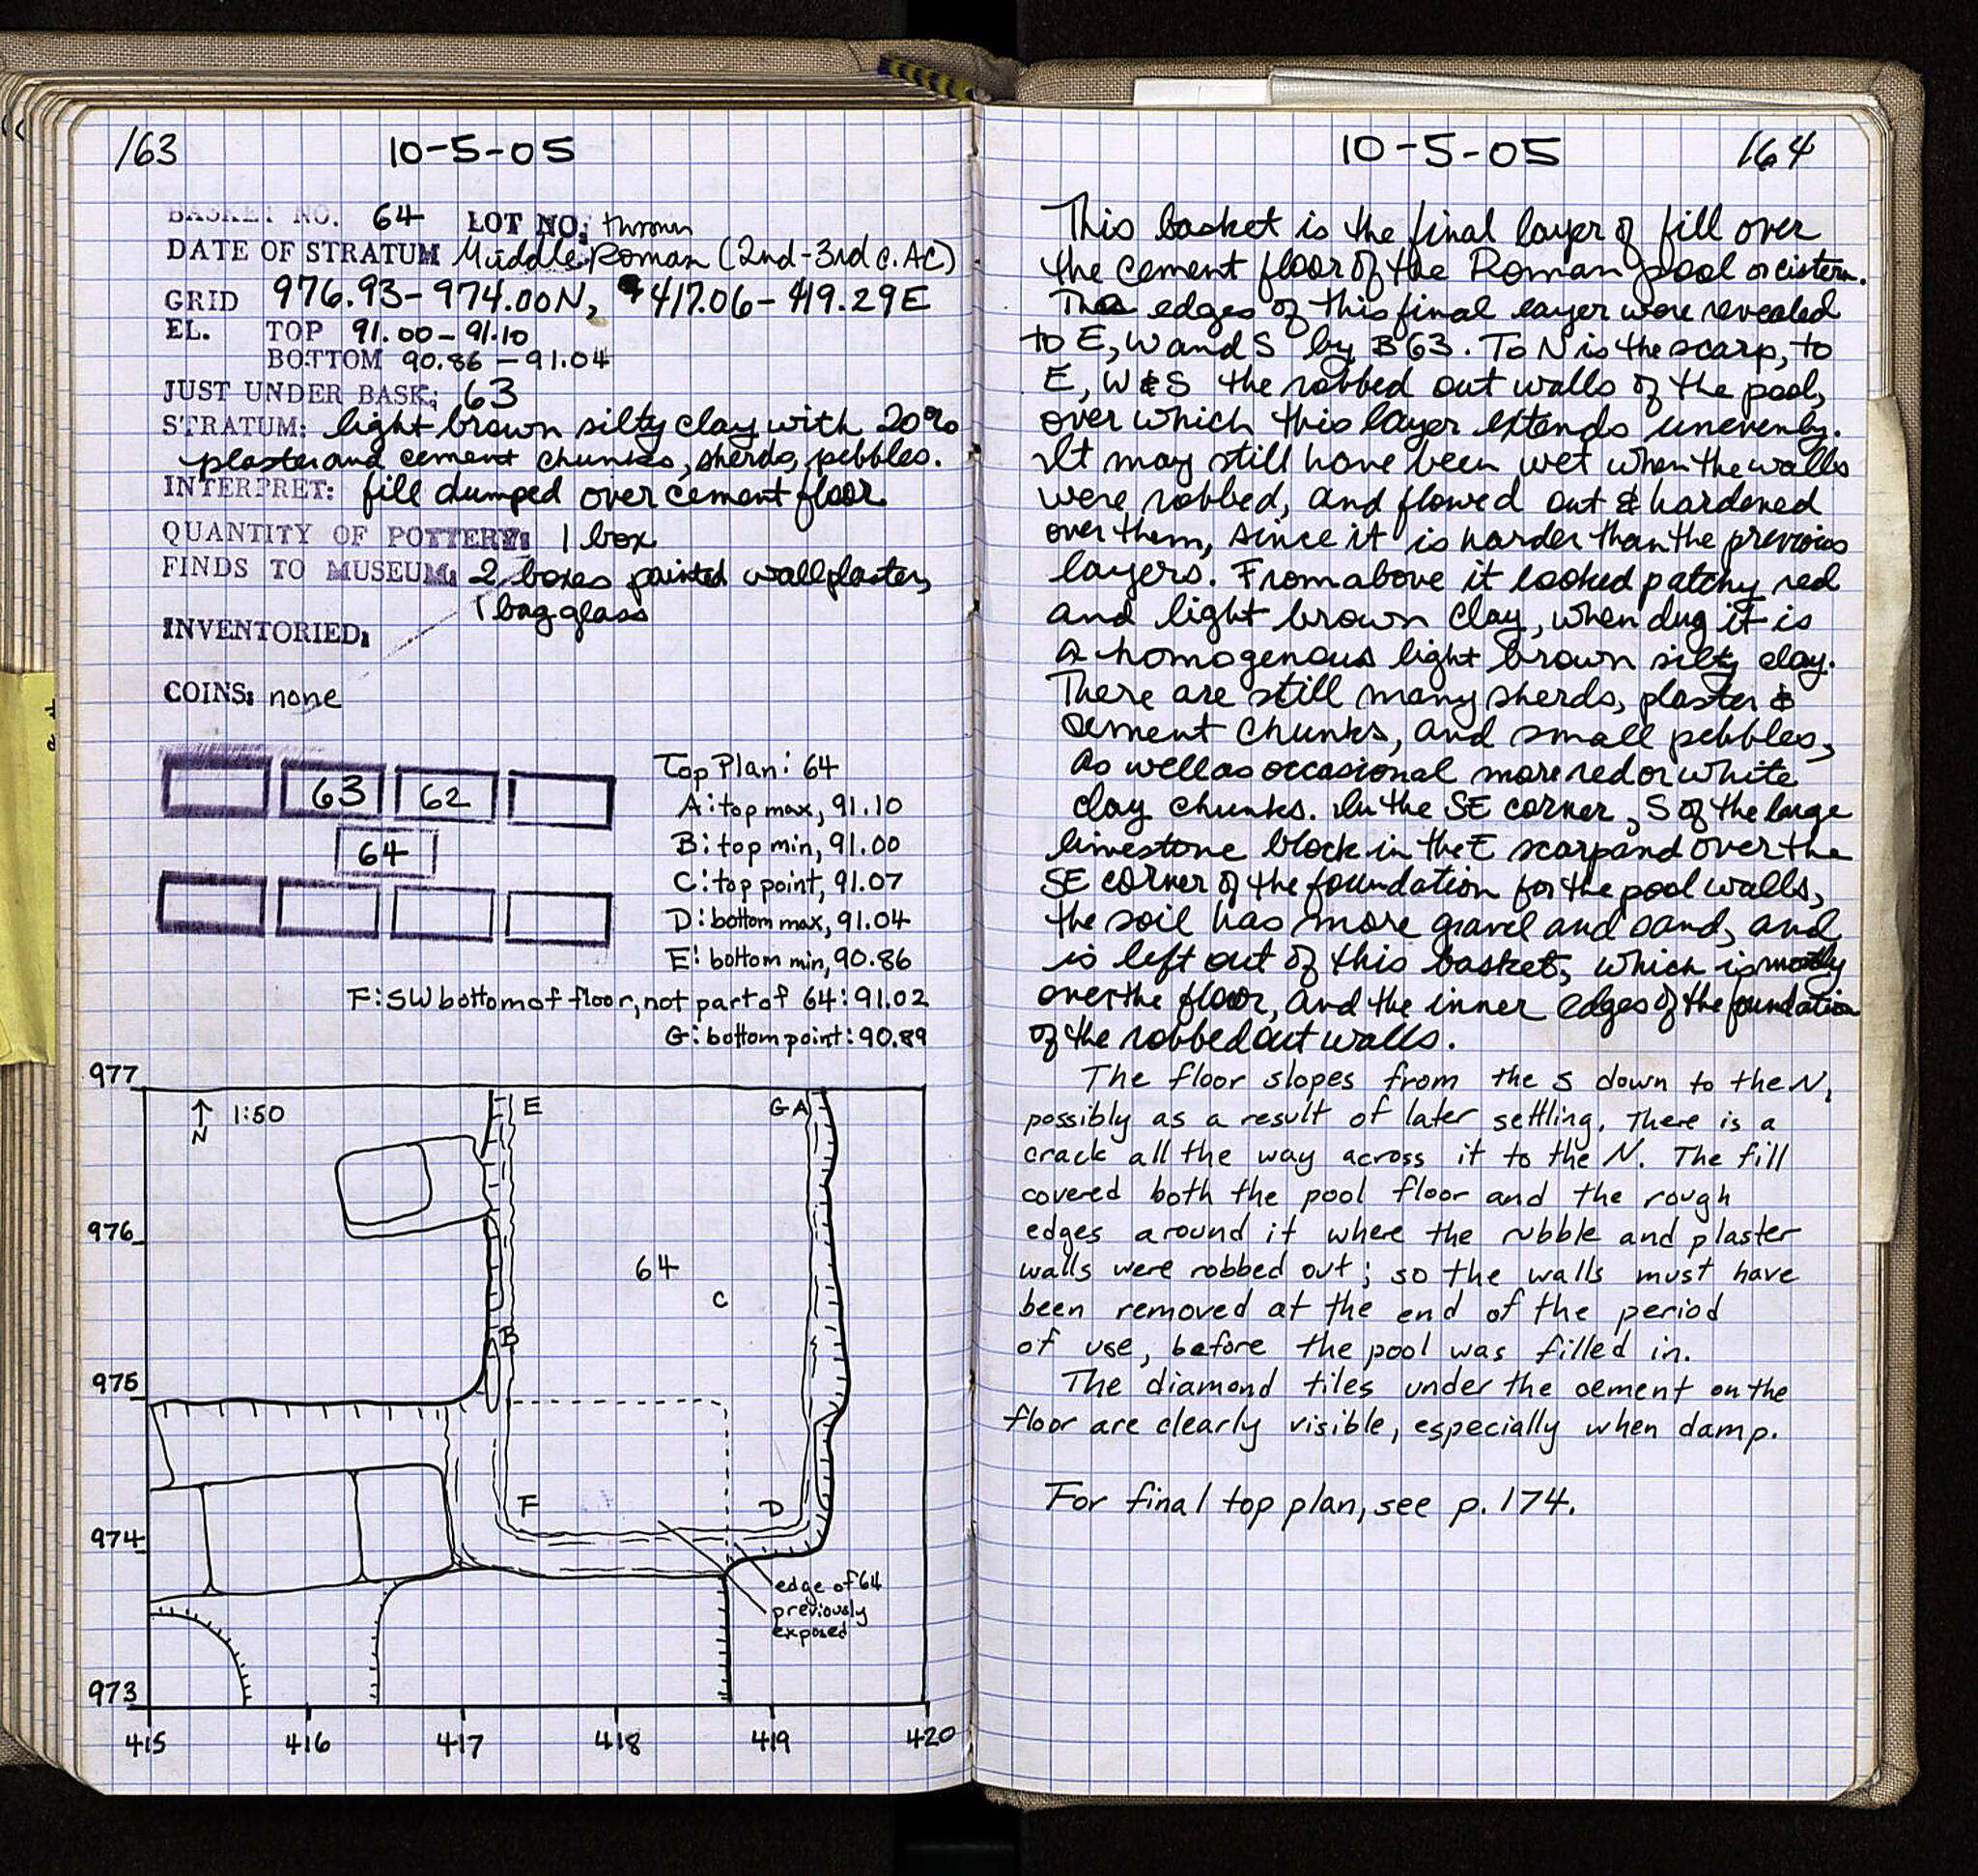 163
10-5-05
BASKET NO. 64 LOT NO: thrown
DATE OF STRATUM Middle Roman (2nd-3rd c. AC)
GRID 976.93-974.00N, 417.06-419.29E
EL. TOP 91.00-91.10
BOTTOM 90.86-91.04
JUST UNDER BASK: 63
STRATUM: light brown silty clay with 20%
plaster and cement chunks, sherds, pebbles.
INTERPRET: fill dumped over cement floor
QUANTITY OF POTTERY: 1 box
FINDS TO MUSEUM: 2 boxes painted wall plaster,
1 bag glass
INVENTORIED:
COINS: none
63 62
64
Top Plan: 64
A: top max, 91.10
B: top min, 91.00
C: top point, 91.07
D: bottom max, 91.04
E: bottom min, 90.86
F: SW bottom of floor, not part of 64: 91.02
G: bottom point: 90.89
977
N 1:50
E
G A
976
64
C
B
975
F
D
974
edge of 64
previously
exposed
973
415 416 417 418 419 420
10-5-05
164
This basket is the final layer of fill over
the cement floor of the Roman pool or cistern.
The edges of this final layer were revealed
to E, W and S by B 63. To N is the scarp, to
E, W & S the robbed out walls of the pool,
over which this layer extends unevenly.
It may still have been wet when the walls
were robbed, and flowed out & hardened
over them, since it is harder than the previous
layers. From above it looked patchy red
and light brown clay, when dug it is
a homogenous light brown silty clay.
There are still many sherds, plaster &
cement chunks, and small pebbles,
as well as occasional more red or white
clay chunks. In the SE corner, S of the large
limestone block in the E scarp and over the
SE corner of the foundation for the pool walls,
the soil has more gravel and sand, and
is left out of this basket, which is mostly
over the floor, and the inner edges of the foundation
of the robbed out walls.
The floor slopes from the S down to the N,
possibly as a result of later settling. There is a
crack all the way across it to the N. The fill
covered both the pool floor and the rough
edges around it where the rubble and plaster
walls were robbed out; so the walls must have
been removed at the end of the period
of use, before the pool was filled in.
The diamond tiles under the cement on the
floor are clearly visible, especially when damp.
For final top plan, see p. 174.